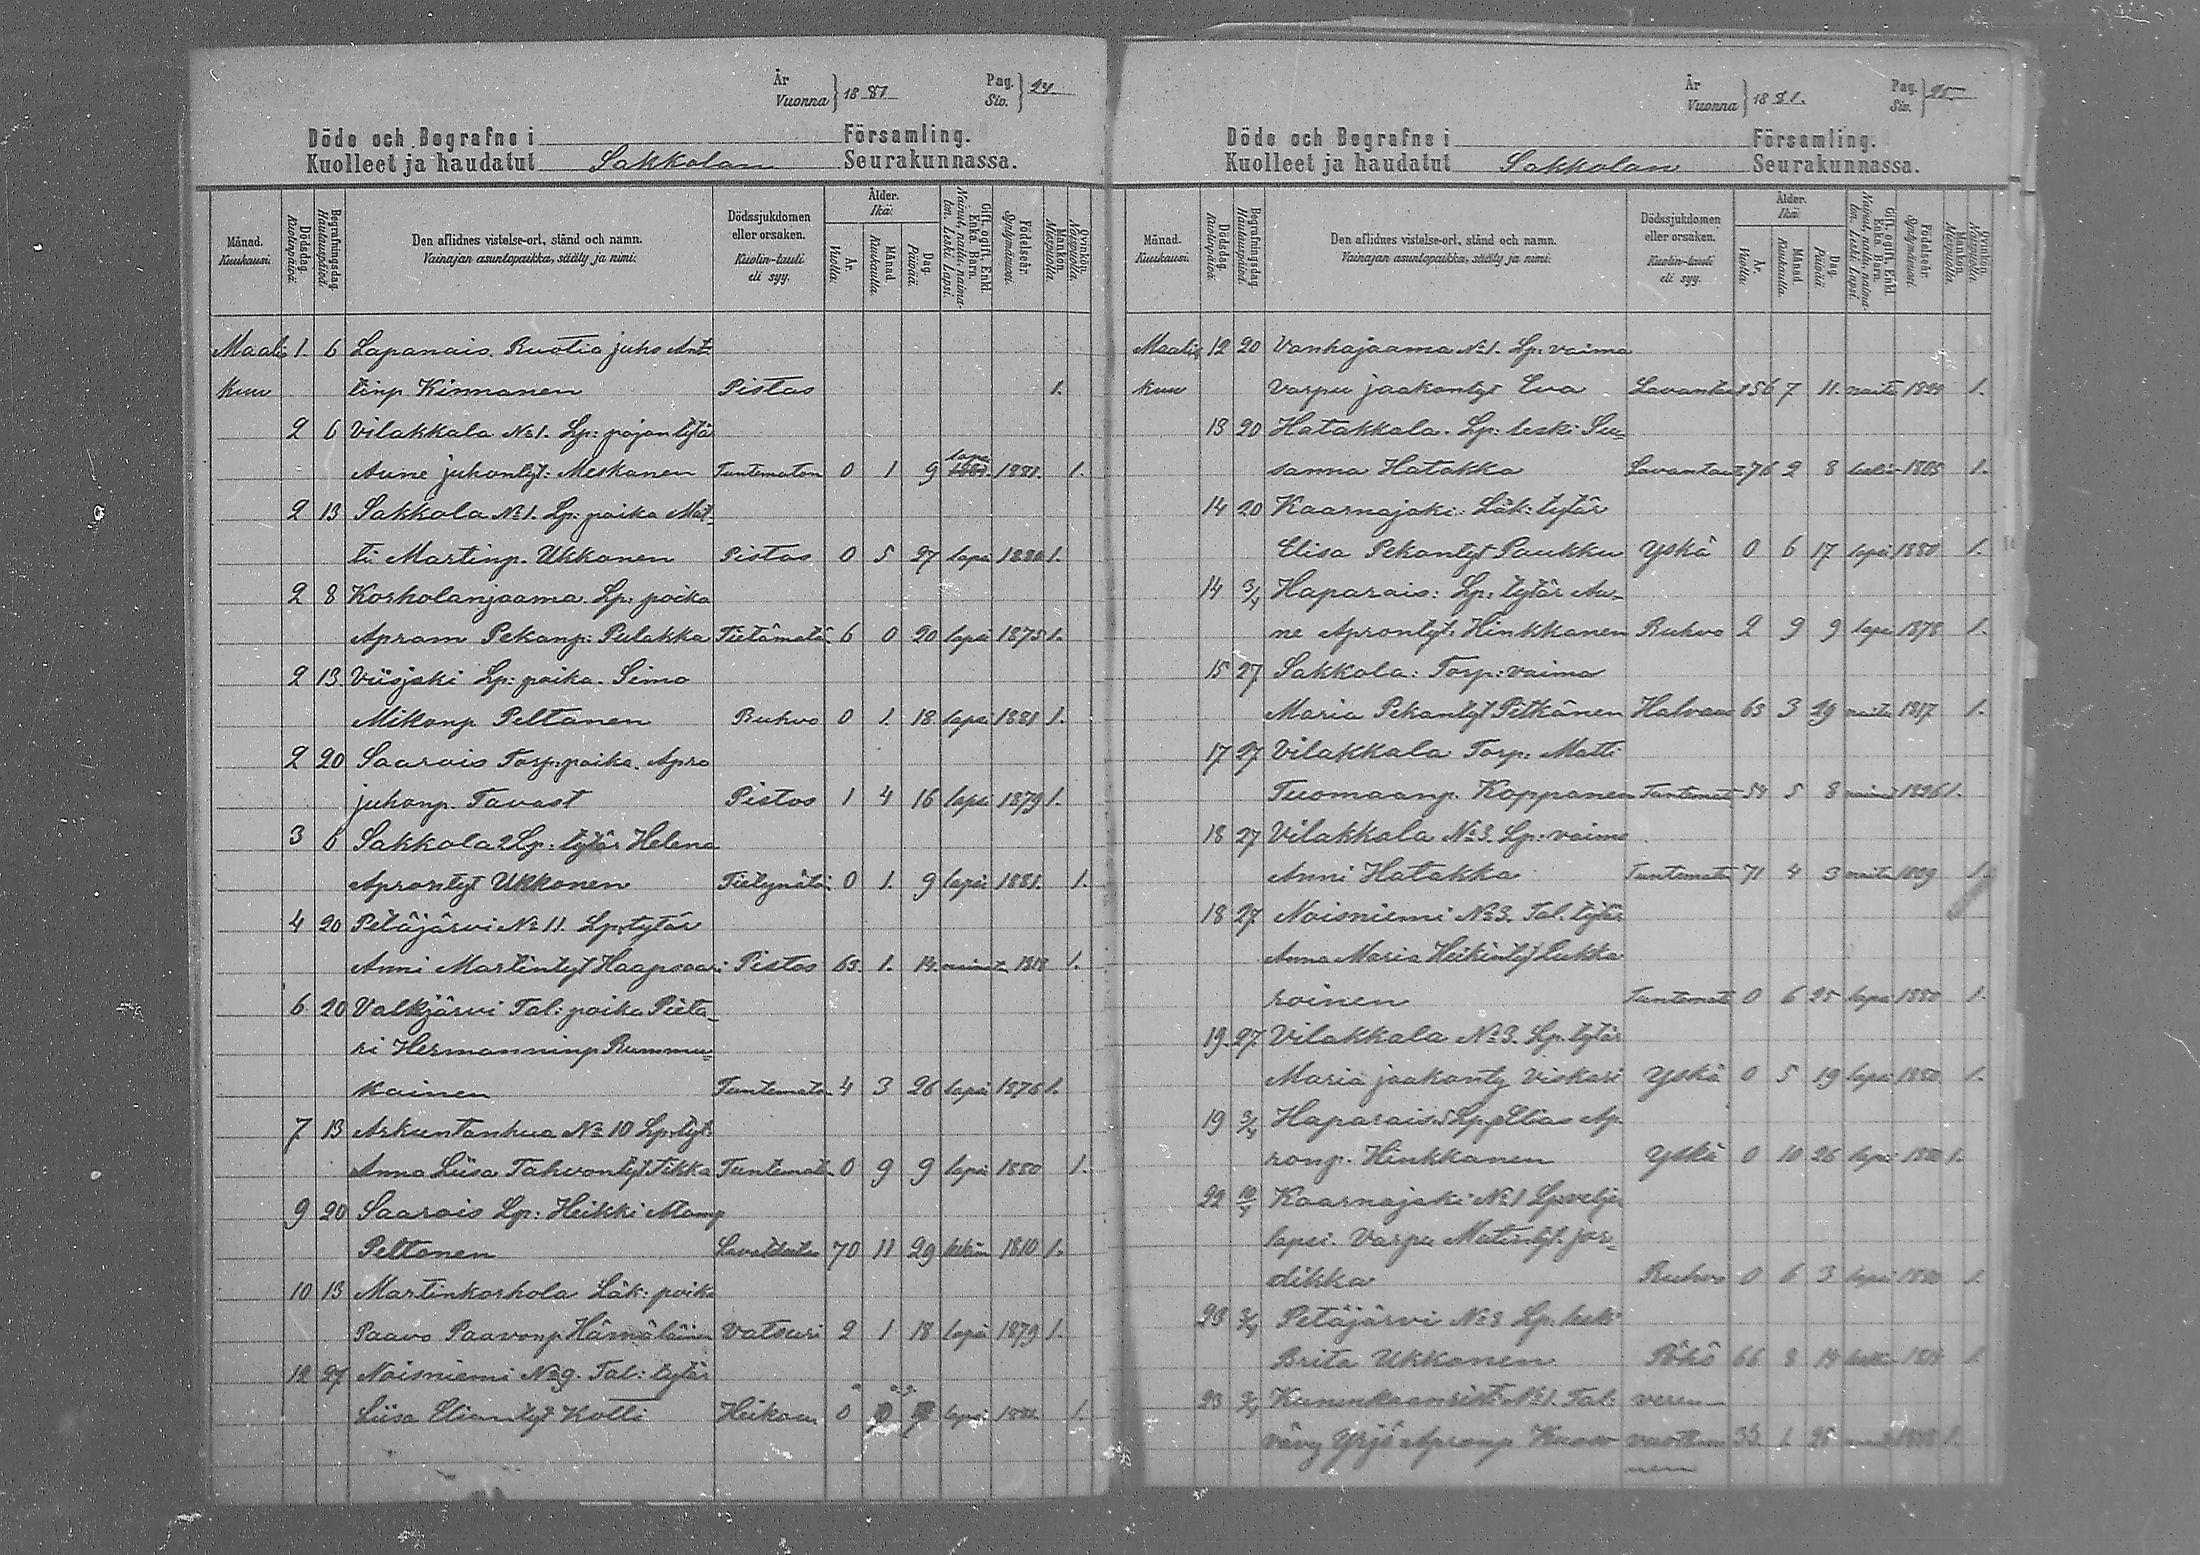 År
Vuonna } 1881
Pag.
Siv. } 24
Döde och Begrafne i Församling.
Kuolleet ja haudatut Sakkolan Seurakunnassa.
Månad. Kuukausi.
Dödsdag. Kuolinpäivä.
Begrafningsdag. Hautauspäivä.
Den aflidnes vistelse-ort, stånd och namn.
Vainajan asuntopaikka, sääty ja nimi.
Dödssjukdomen eller orsaken.
Kuolin-tauti eli syy.
Ålder. Ikä.
År. Vuotta.
Månad. Kuukautta.
Dag. Päivää.
Gift, ogift, Enkl. Enka. Barn.
Nainut, naitu, naimaton. Leski. Lapsi.
Födelseår. Syntymävuosi.
Mankön. Miespuolia.
Qvinkön. Naispuolia.
Maalis 1. 6 Lapanais. Ruotia juho Ant-
kuu tinp Kinnanen Pistos 1.
2 6 Vilakkala No 1. Lp: pojan tytä
Aune juhontyt: Meskanen Tuntematon 0 1 9 lapsi 1881. 1.
2 13 Sakkola No 1. Lp: poika Mat
ti Martinp. Ukkonen Pistos 0 5 27 lapsi 1880 1.
2 8 Korholanjaama. Lp: poika
Apram Pekanp: Pulakka Tietämätä 6 0 20 lapsi 1875 1.
2 13 Viisjoki Lp: poika. Simo
Mikonp Peltonen Ruhvo 0 1. 18 lapsi 1881 1.
2 20 Saarois Torp: poika. Apro
juhonp. Tavast Pistos 1 4 16 lapsi 1879 1.
3 6 Sakkola 2 Lp: tytär Helena
Aprontyt Ukkonen 0 1. 9 lapsi 1881. 1.
4 20 Petäjärvi No 11. Lp: tytär
Anni Martintyt Haapsaari Pistos 63. 1. 14 1818 1.
6 20 Valkjärvi Tal: poika Pieta-
ri Hermanninp Rummu-
kainen Tuntematon 4 3 26 lapsi 1876 1.
7 13 Arkuntanhua No 10 Lp: tyt:
Anna Liisa Tahvontyt Tikka Tuntematon 0 9 9 lapsi 1880 1.
9 20 Saarois Lp: Heikki Mamp
Peltonen 70 11 29 1810 1.
10 13 Martinkorhola Läk: poika
Paavo Paavonp Hämäläinen Vatsuri 2 1 18 lapsi 1879 1.
12 27 Noisniemi No 9. Tal: tytär
Liisa Eliantyt Kotti Heikous 0 lapsi 1881. 1.
År
Vuonna } 1881.
Pag.
Siv. } 25
Döde och Begrafne i Församling.
Kuolleet ja haudatut Sakkolan Seurakunnassa.
Månad. Kuukausi.
Dödsdag. Kuolinpäivä.
Begrafningsdag. Hautauspäivä.
Den aflidnes vistelse-ort, stånd och namn.
Vainajan asuntopaikka, sääty ja nimi.
Dödssjukdomen eller orsaken.
Kuolin-tauti eli syy.
Ålder. Ikä.
År. Vuotta.
Månad. Kuukautta.
Dag. Päivää.
Gift, ogift, Enkl. Enka. Barn.
Nainut, naitu, naimaton. Leski. Lapsi.
Födelseår. Syntymävuosi.
Mankön. Miespuolia.
Qvinkön. Naispuolia.
Maalis 12 20 Vanhajaama No 1. Lp: vaimo
kuu Varpu jaakontyt Eva Lavantaut 56 7 11. naitu 1824 1.
13 20 Hatakkala. Lp: leski Su-
sanna Hatakka Lavantaut 76 2 8 leski 1805 1.
14 20 Kaarnajoki: Läk: tytär
Elisa Pekantyt Paukku Yskä 0 6 17 lapsi 1880 1.
14 3/4 Haparais: Lp: tytär Au-
ne Aprontyt: Hinkkanen Ruhvo 2 9 9 lapsi 1878 1.
15 27 Sakkola: Torp: vaimo
Maria Pekantyt Pitkänen Halvaus 63 3 29 naitu 1817 1.
17 27 Vilakkala Torp: Matti
Tuomaanp. Kopponen Tuntemat 54 5 8 1826 1.
18 27 Vilakkala No 3. Lp: vaimo
Anni Hatakka Tuntemato 71 4 3 naitu 1809 1.
18 27 Noisniemi No 3. Tal. tytär
Anna Maria Heikintyt Lukka
roinen Tuntemat 0 6 25 lapsi 1880 1.
19. 27. Vilakkala No 3. Lp. tytär
Maria jaakonty Viskari Yskä 0 5 19 lapsi 1880 1.
19 3/4 Haparais: Lp: p Elias Ap-
ronp. Hinkkanen Yskä 0 10 26 lapsi 1880 1.
22 10/4 Kaarnajoki No 1 Lp veljen
lapsi. Varpu Matintyt. jor-
dikka Ruhvo 0 6 3 lapsi 1880 1.
23 3/4 Petäjärvi No 8 Lp. leski
Brita Ukkonen 66 8 14 leski 1.
23 3/4 Kuninkaanristi No 1. Tal: veren-
vävy Yrjö Apronp Kuow- vuottum 33 1 25 1.
nen